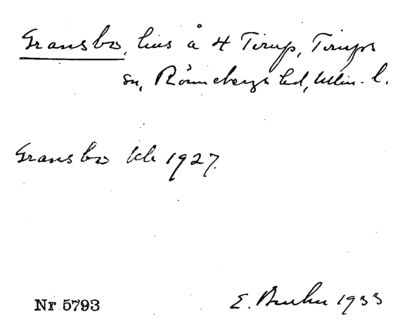 Gransbo, hus å 4 Tirup, Tirups
sn, Rönnebergs hd, Mlm. l.
Gransbo kk 1927.
Nr 5793
E. 1933